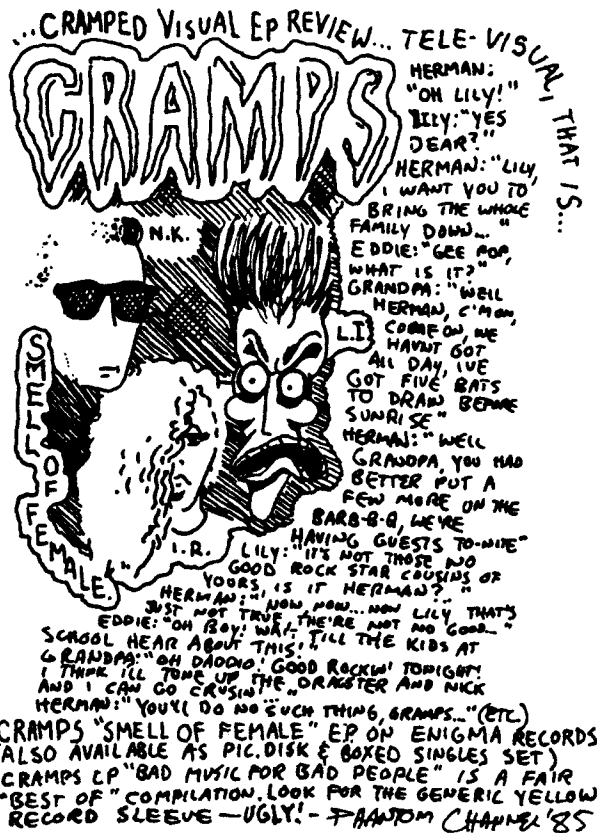 ...CRAMPED VISUAL EP REVIEW... TELE-VISUAL, THAT IS...
CRAMPS
HERMAN:
"OH LILY!"
LILY: "YES
DEAR?"
HERMAN: "LILY,
I WANT YOU TO
BRING THE WHOLE
FAMILY DOWN..."
EDDIE: "GEE POP,
WHAT IS IT?"
GRANDPA: "WELL
HERMAN, C'MON,
COME ON, WE
HAVNT GOT
ALL DAY, IVE
GOT FIVE BATS
TO DRAW BEFORE
SUNRISE"
HERMAN: "WELL
GRANDPA, YOU HAD
BETTER PUT A
FEW MORE ON THE
BARB-B-Q, WE'RE
HAVING GUESTS TO-NITE"
LILY: "IT'S NOT THOSE NO
GOOD ROCK STAR COUSINS OF
YOURS, IS IT HERMAN?"
HERMAN: "NOW, NOW... NOW LILY THAT'S
JUST NOT TRUE, THE'RE NOT NO GOOD..."
EDDIE: "OH BOY! WAIT TILL THE KIDS AT
SCHOOL HEAR ABOUT THIS!"
GRANDPA: "OH DADDIO! GOOD ROCKIN' TONIGHT!
I THINK I'LL TUNE UP THE DRAGSTER AND NICK
AND I CAN GO CRUSIN!"
HERMAN: "YOU'LL DO NO SUCH THING, GRAMPS..." (ETC)
N.K.
L.I.
I.R.
SMELL OF FEMALE."
CRAMPS "SMELL OF FEMALE" EP ON ENIGMA RECORDS
(ALSO AVAILABLE AS PIC. DISK & BOXED SINGLES SET)
CRAMPS LP "BAD MUSIC FOR BAD PEOPLE" IS A FAIR
"BEST OF" COMPILATION. LOOK FOR THE GENERIC YELLOW
RECORD SLEEVE — UGLY! - PHANTOM CHANNEL '85